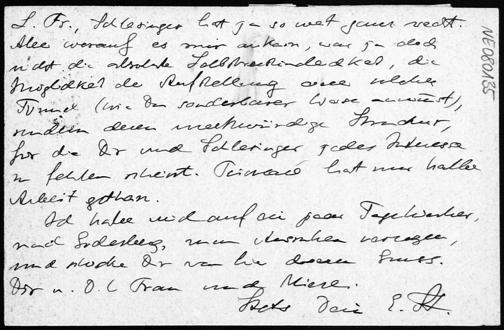 L. Fr., Schlesinger hat ja so weit ganz recht.
Aber worauf es mir ankam, war ja doch
nicht die absolute Selbstverständlichkeit, die
Möglichkeit der Aufstellung einer solchen
Formel (wie Du sonderbarer Weise annimmst),
sondern deren merkwürdige Struktur,
für die Dir und Schlesinger jedes Interesse
zu fehlen scheint. Poincaré hat nur halbe
Arbeit gethan.
Ich habe mich auf ein paar Tage hierher,
nach, zum Ausruhen verzogen,
und schicke Dir von hier deinen Gruss.
Dir u. D. l. Frau und Miene.
Stets Dein E. St.
NE080135